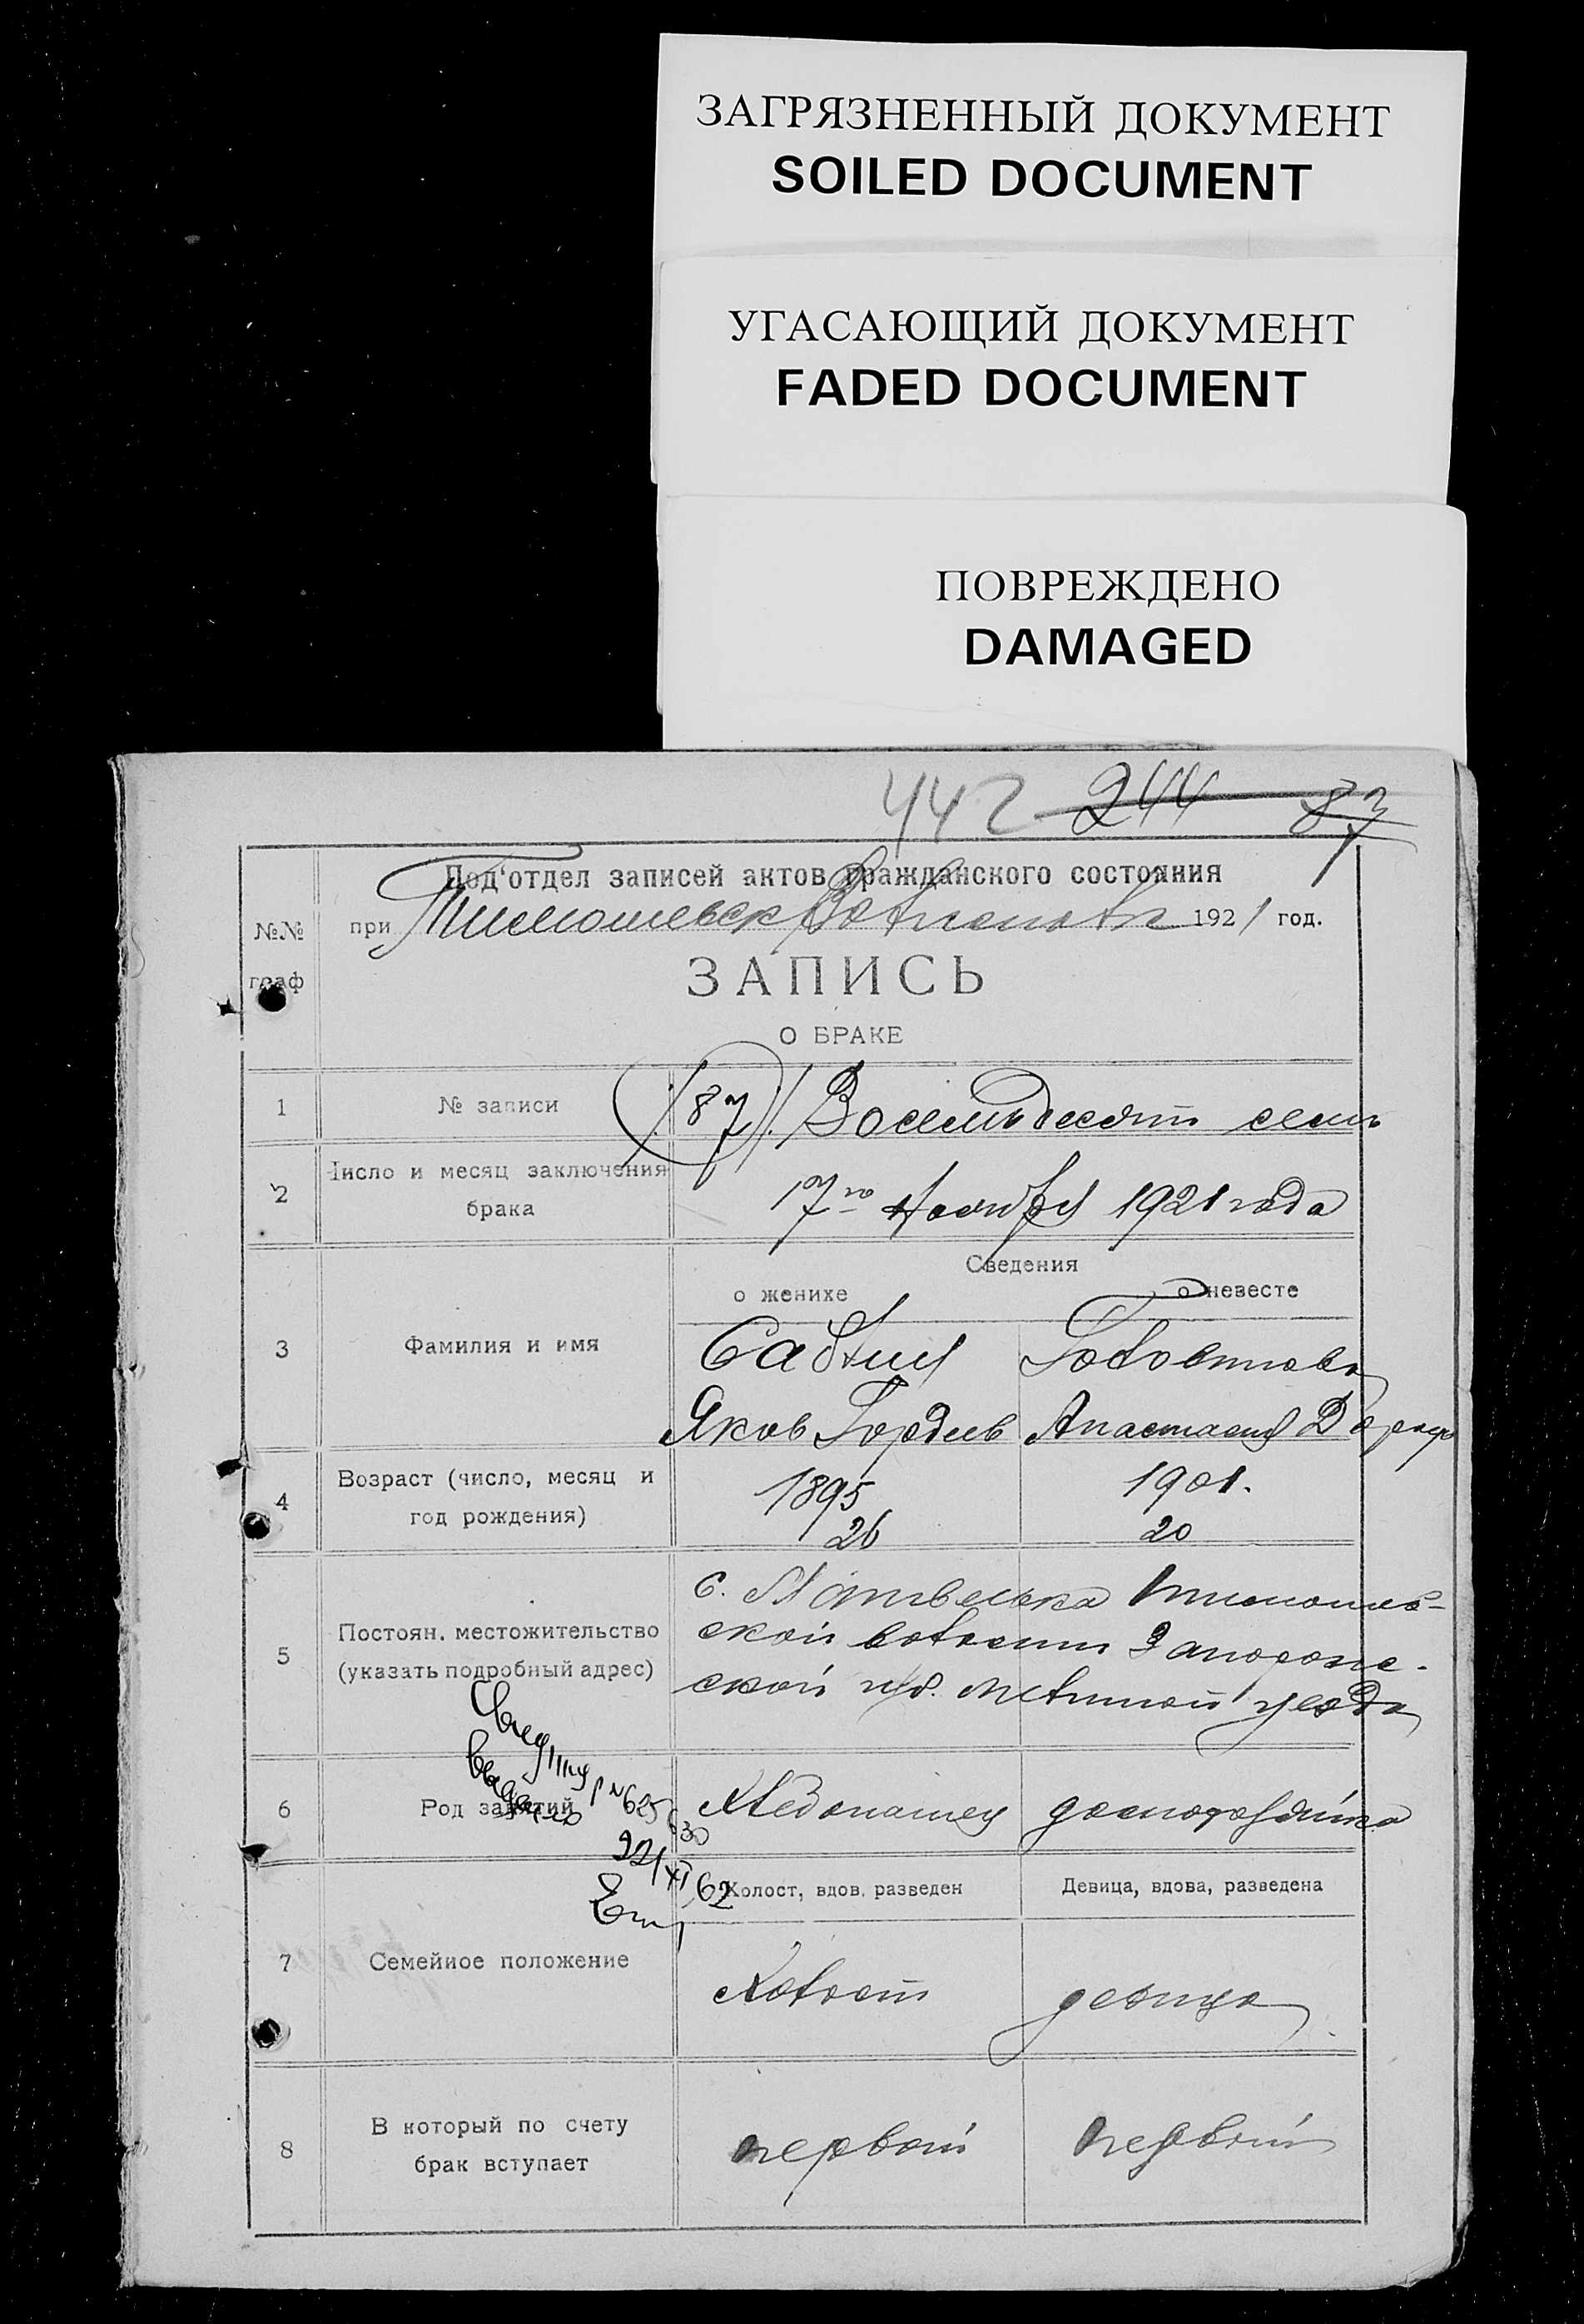 ЗАГРЯЗНЕННЫЙ ДОКУМЕНТ
SOILED DOCUMENT
УГАСАЮЩИЙ ДОКУМЕНТ
FADED DOCUMENT
ПОВРЕЖДЕНО
DAMAGED
442 244 87
Под'отдел записей актов гражданского состояния
№№ граф
при 1921 год.
ЗАПИСЬ
О БРАКЕ
1 № записи /87/ Восемьдесят семь
2 Число и месяц заключения
брака
17го Ноября 1921 года
Сведения
о женихе о невесте
3 Фамилия и имя
Яков Гордеев Анастасия
4 Возраст (число, месяц и
год рождения)
1895 1901.
26 20
5 Постоян. местожительство
(указать подробный адрес)
с.
ской волости Запорож-
ской губ. уезда
6 Род занятий
Хлебопашец домохозяйка
№625
22/XI 62
Холост, вдов, разведен Девица, вдова, разведена
7 Семейное положение
Холост девица
8 В который по счету
брак вступает
первый первый